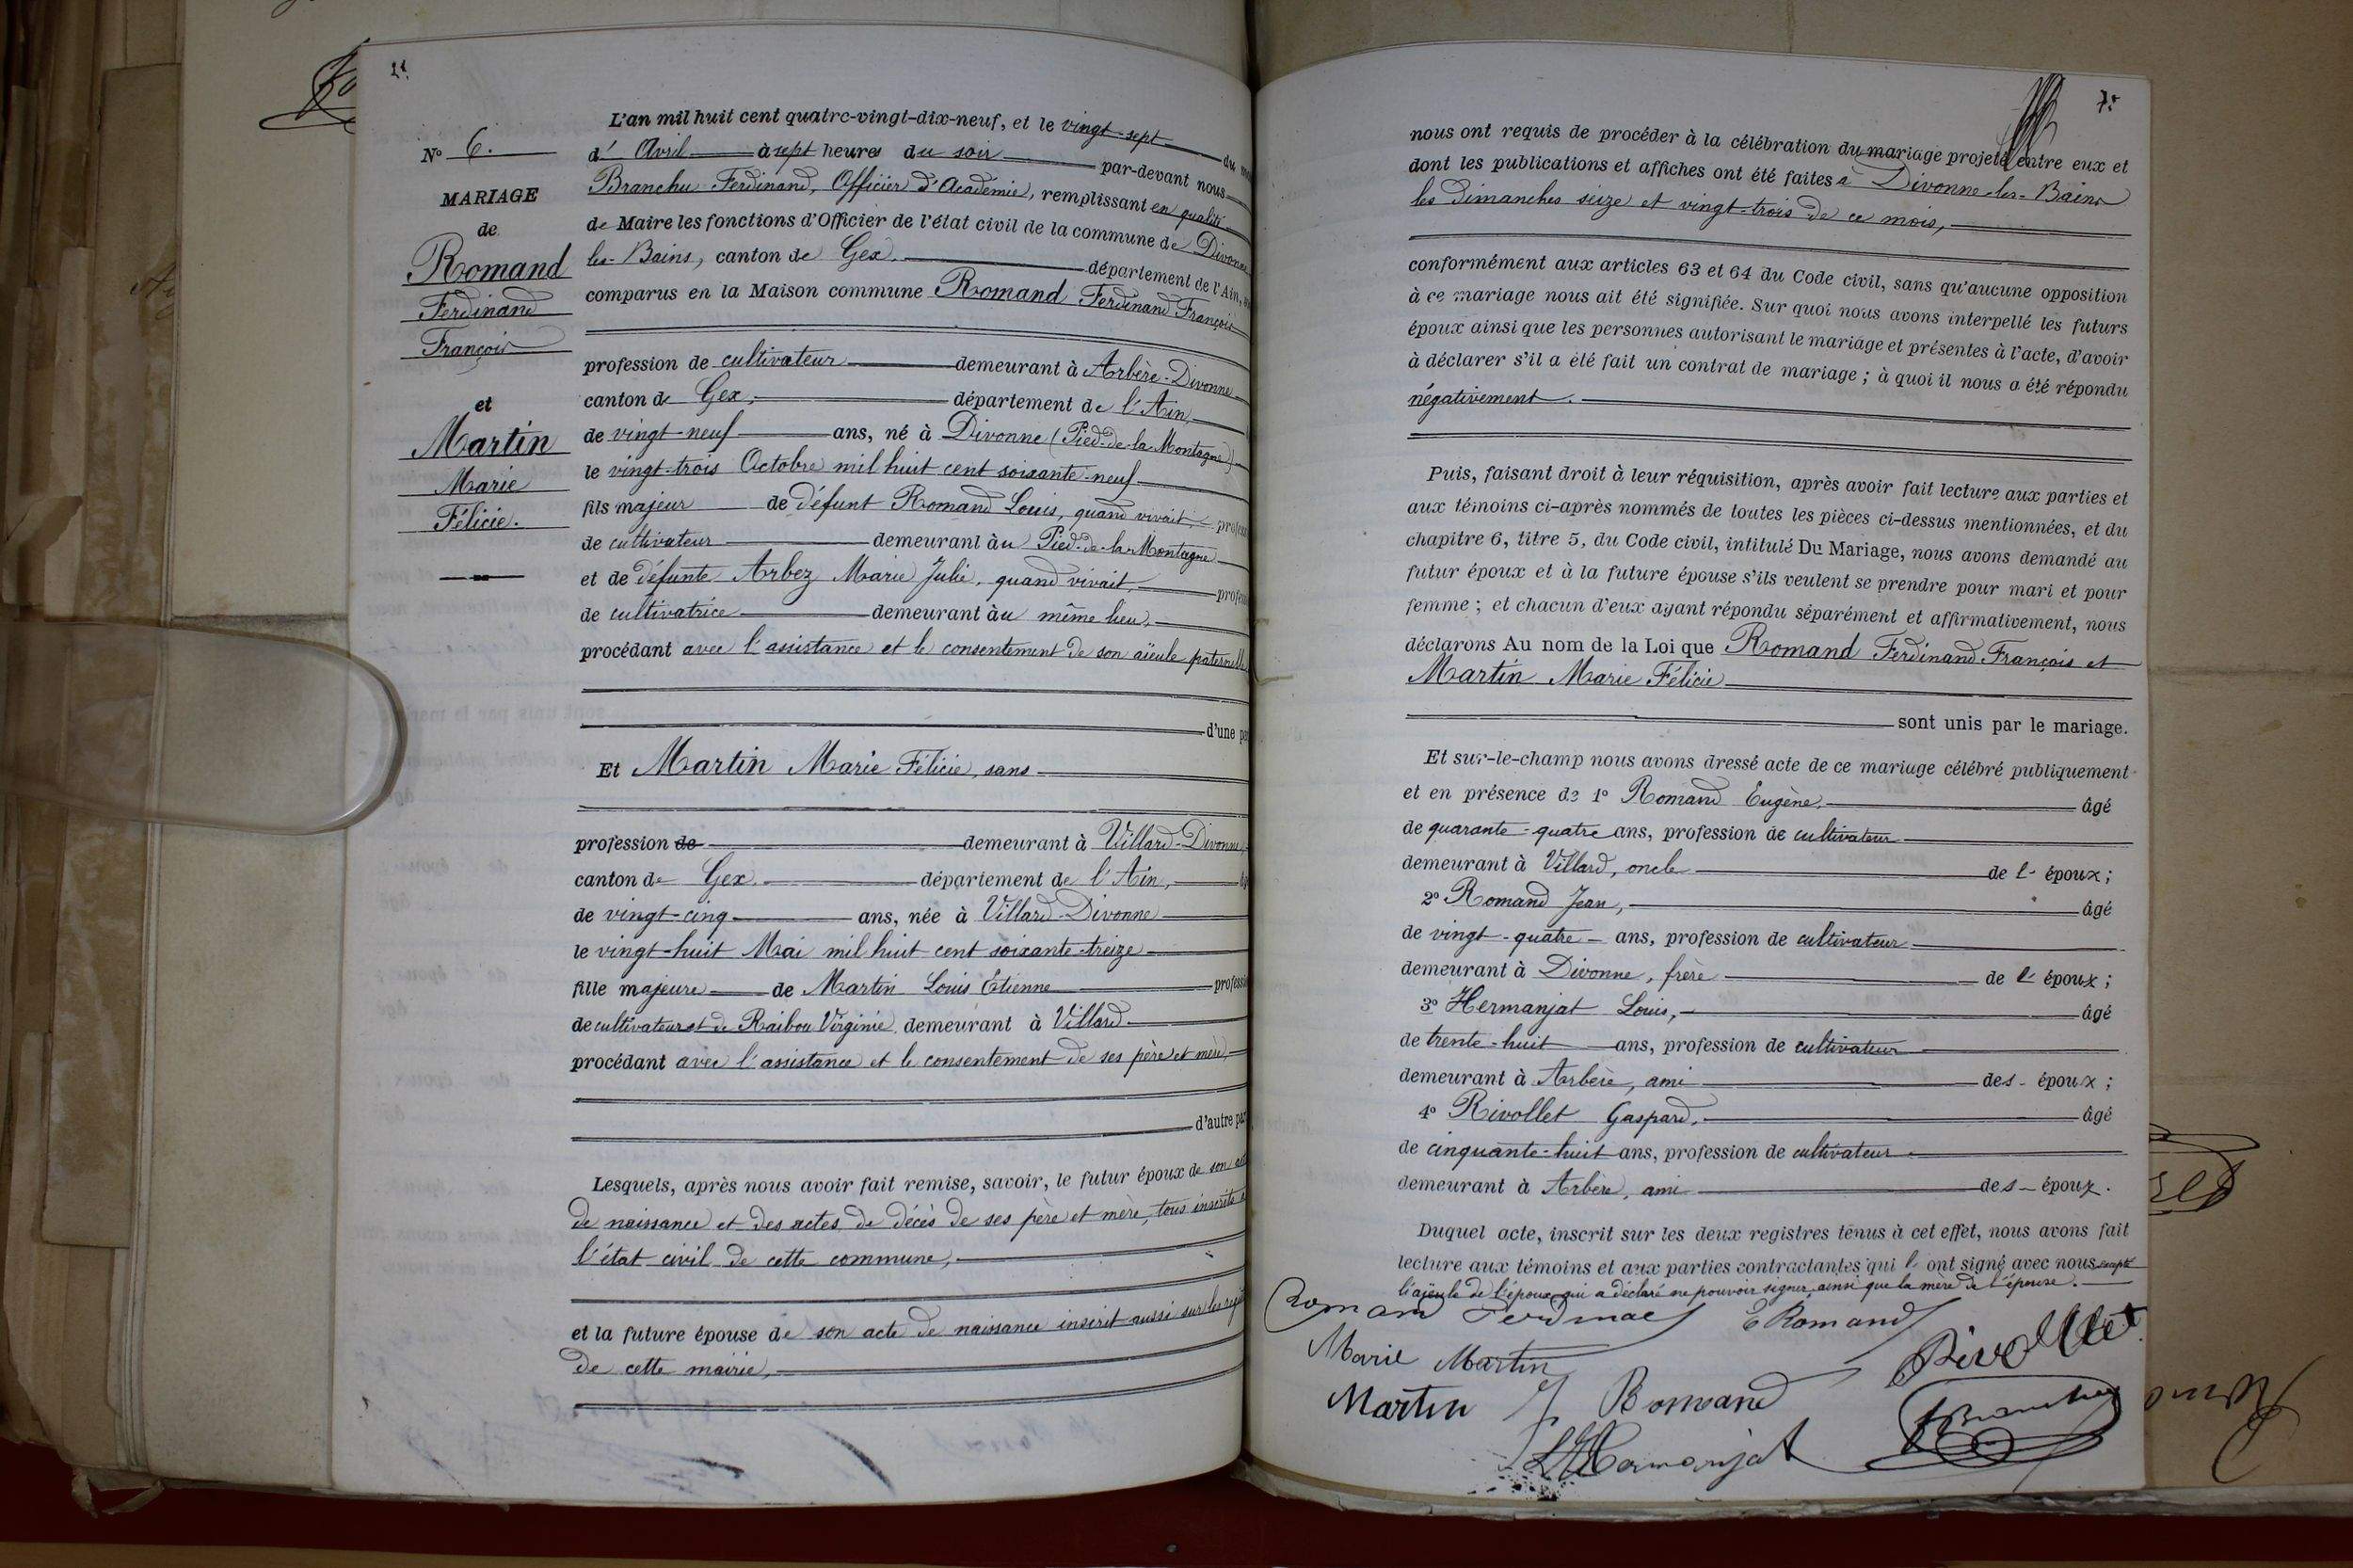 N° 6.
MARIAGE
de
Romand
Ferdinand
François
et
Martin
Marie
Félicie.
L'an mil huit cent quatre-vingt-dix-neuf, et le vingt-sept du
d' Avril à sept heures du soir par-devant nous
Branchu Ferdinand, Officier d'Académie, remplissant en qualité
de Maire les fonctions d'Officier de l'état civil de la commune de Divonne
les-Bains, canton de Gex, département de l'Ain,
comparus en la Maison commune Romand Ferdinand François
profession de cultivateur demeurant à Arbère-Divonne
canton de Gex, département de l'Ain,
de vingt-neuf ans, né à Divonne (Pied-de-la-Montagne)
le vingt-trois Octobre mil huit cent soixante-neuf
fils majeur de défunt Romand Louis, quand vivait,
de cultivateur demeurant àu Pied-de-la-Montagne
et de défunte Arbez Marie Julie, quand vivait,
de cultivatrice demeurant àu même lieu,
procédant avec l'assistance et le consentement de son aïeule paternelle,
d'une
Et Martin Marie Félicie, sans
profession de demeurant à Villard-Divonne,
canton de Gex, département de l'Ain,
de vingt-cinq ans, née à Villard-Divonne
le vingt-huit Mai mil huit cent soixante-treize
fille majeure de Martin Louis Etienne
de cultivateur et de Raibou Virginie, demeurant à Villard
procédant avec l'assistance et le consentement de ses père et mère,
d'autre
Lesquels, après nous avoir fait remise, savoir, le futur époux de son
de naissance et des actes de décès de ses père et mère, tous inscrits
l'état civil de cette commune,
et la future épouse de son acte de naissance inscrit aussi sur les
de cette mairie,
nous ont requis de procéder à la célébration du mariage projeté entre eux et
dont les publications et affiches ont été faites à Divonne-les-Bains
les dimanches seize et vingt-trois de ce mois,
conformément aux articles 63 et 64 du Code civil, sans qu'aucune opposition
à ce mariage nous ait été signifiée. Sur quoi nous avons interpellé les futurs
époux ainsi que les personnes autorisant le mariage et présentes à l'acte, d'avoir
à déclarer s'il a été fait un contrat de mariage ; à quoi il nous a été répondu
négativement.
Puis, faisant droit à leur réquisition, après avoir fait lecture aux parties et
aux témoins ci-après nommés de toutes les pièces ci-dessus mentionnées, et du
chapitre 6, titre 5, du Code civil, intitulé Du Mariage, nous avons demandé au
futur époux et à la future épouse s'ils veulent se prendre pour mari et pour
femme ; et chacun d'eux ayant répondu séparément et affirmativement, nous
déclarons Au nom de la Loi que Romand Ferdinand François et
Martin Marie Félicie
sont unis par le mariage.
Et sur-le-champ nous avons dressé acte de ce mariage célébré publiquement
et en présence de 1° Romand Eugène, âgé
de quarante-quatre ans, profession de cultivateur
demeurant à Villard, oncle de l' époux ;
2° Romand Jean, âgé
de vingt-quatre ans, profession de cultivateur
demeurant à Divonne, frère de l' époux ;
3° Hermanjat Louis, âgé
de trente-huit ans, profession de cultivateur
demeurant à Arbère, ami des époux ;
4° Rivollet Gaspard, âgé
de cinquante-huit ans, profession de cultivateur
demeurant à Arbère, ami des époux.
Duquel acte, inscrit sur les deux registres tenus à cet effet, nous avons fait
lecture aux témoins et aux parties contractantes qui l' ont signé avec nous excepté
l'aïeule de l'époux qui a déclaré ne pouvoir signer, ainsi que la mère de l'épouse.
Romand Ferdinand E Romand
Marie Martin Rivollet
Martin J Romand
L Hermanjat